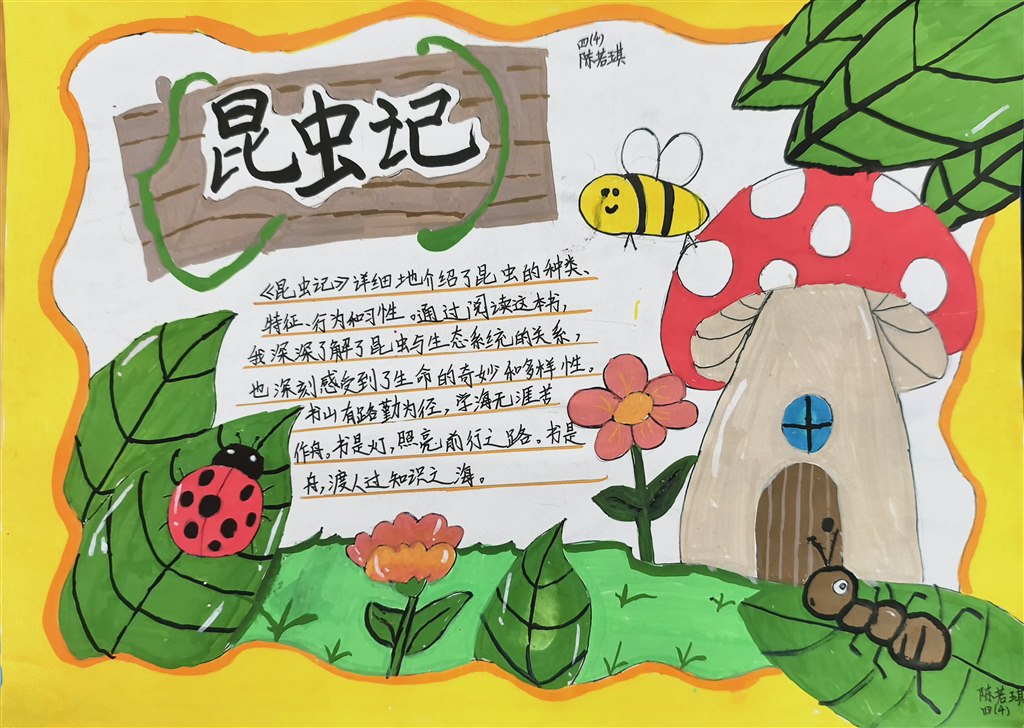 四(4)
陈若琪
昆虫记
《昆虫记》详细地介绍了昆虫的种类、
特征、行为和习性。通过阅读这本书,
我深深了解了昆虫与生态系统的关系,
也深刻感受到了生命的奇妙和多样性。
书山有路勤为径,学海无涯苦
作舟。书是灯,照亮前行之路。书是
舟,渡人过知识之海。
陈若琪
四(4)